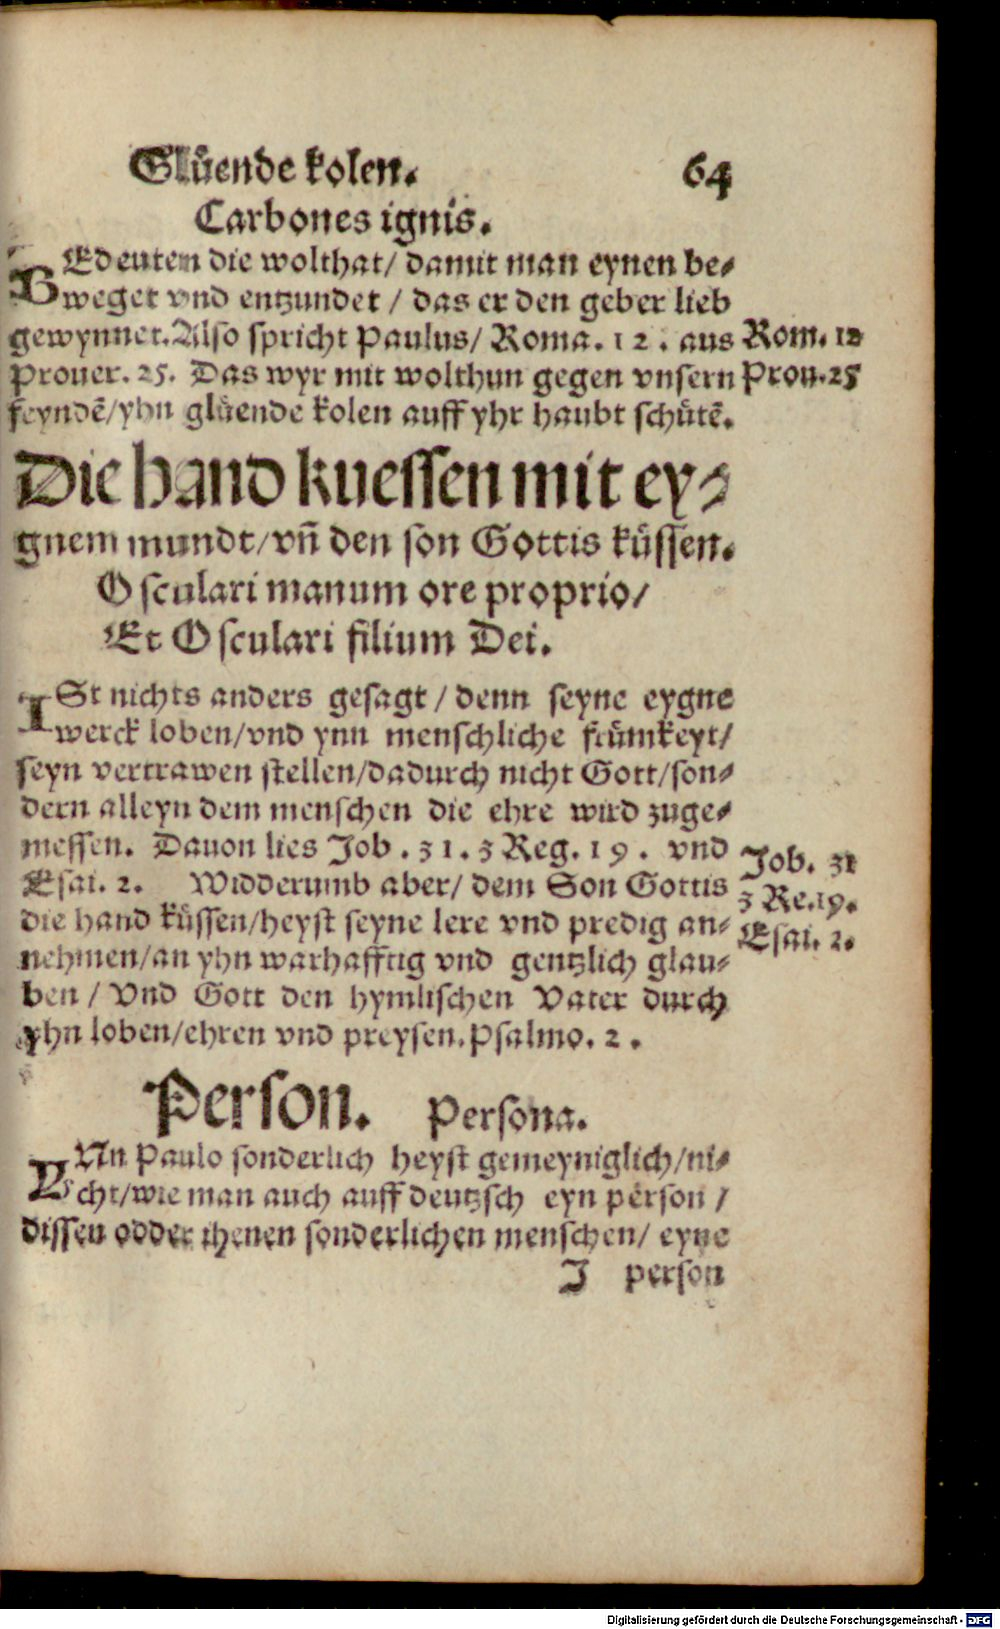 Glůende kolen. 64
Carbones ignis.
BEdeuten die wolthat/ damit man eynen be⸗
weget vnd entzundet / das er den geber lieb
gewynnet. Also spricht Paulus/ Roma. 12. aus Rom. 12
Prouer. 25. Das wyr mit wolthun gegen vnsern Prou. 25
feyndē/yhn glůende kolen auff yhr haubt schůtē.
Die hand kuessen mit ey⸗
gnem mundt/vñ den son Gottis kůssen.
Osculari manum ore proprio/
Et Osculari filium Dei.
ISt nichts anders gesagt / denn seyne eygne
werck loben/vnd ynn menschliche frůmkeyt/
seyn vertrawen stellen/dadurch nicht Gott/son⸗
dern alleyn dem menschen die ehre wird zuge⸗
messen. Dauon lies Job. 31. 3 Reg. 19. vnd Job. 31
Esai. 2. Widderumb aber/ dem Son Gottis 3 Re. 19.
die hand kůssen/heyst seyne lere vnd predig an⸗ Esai. 2.
nehmen/an yhn warhafftig vnd gentzlich glau⸗
ben / Vnd Gott den hymlischen Vater durch
yhn loben/ehren vnd preysen. Psalmo. 2.
Person. Persona.
YNn Paulo sonderlich heyst gemeyniglich/ni⸗
cht/wie man auch auff deutzsch eyn person /
dissen odder ihenen sonderlichen menschen/ eyne
I person
Digitalisierung gefördert durch die Deutsche Forschungsgemeinschaft - DFG